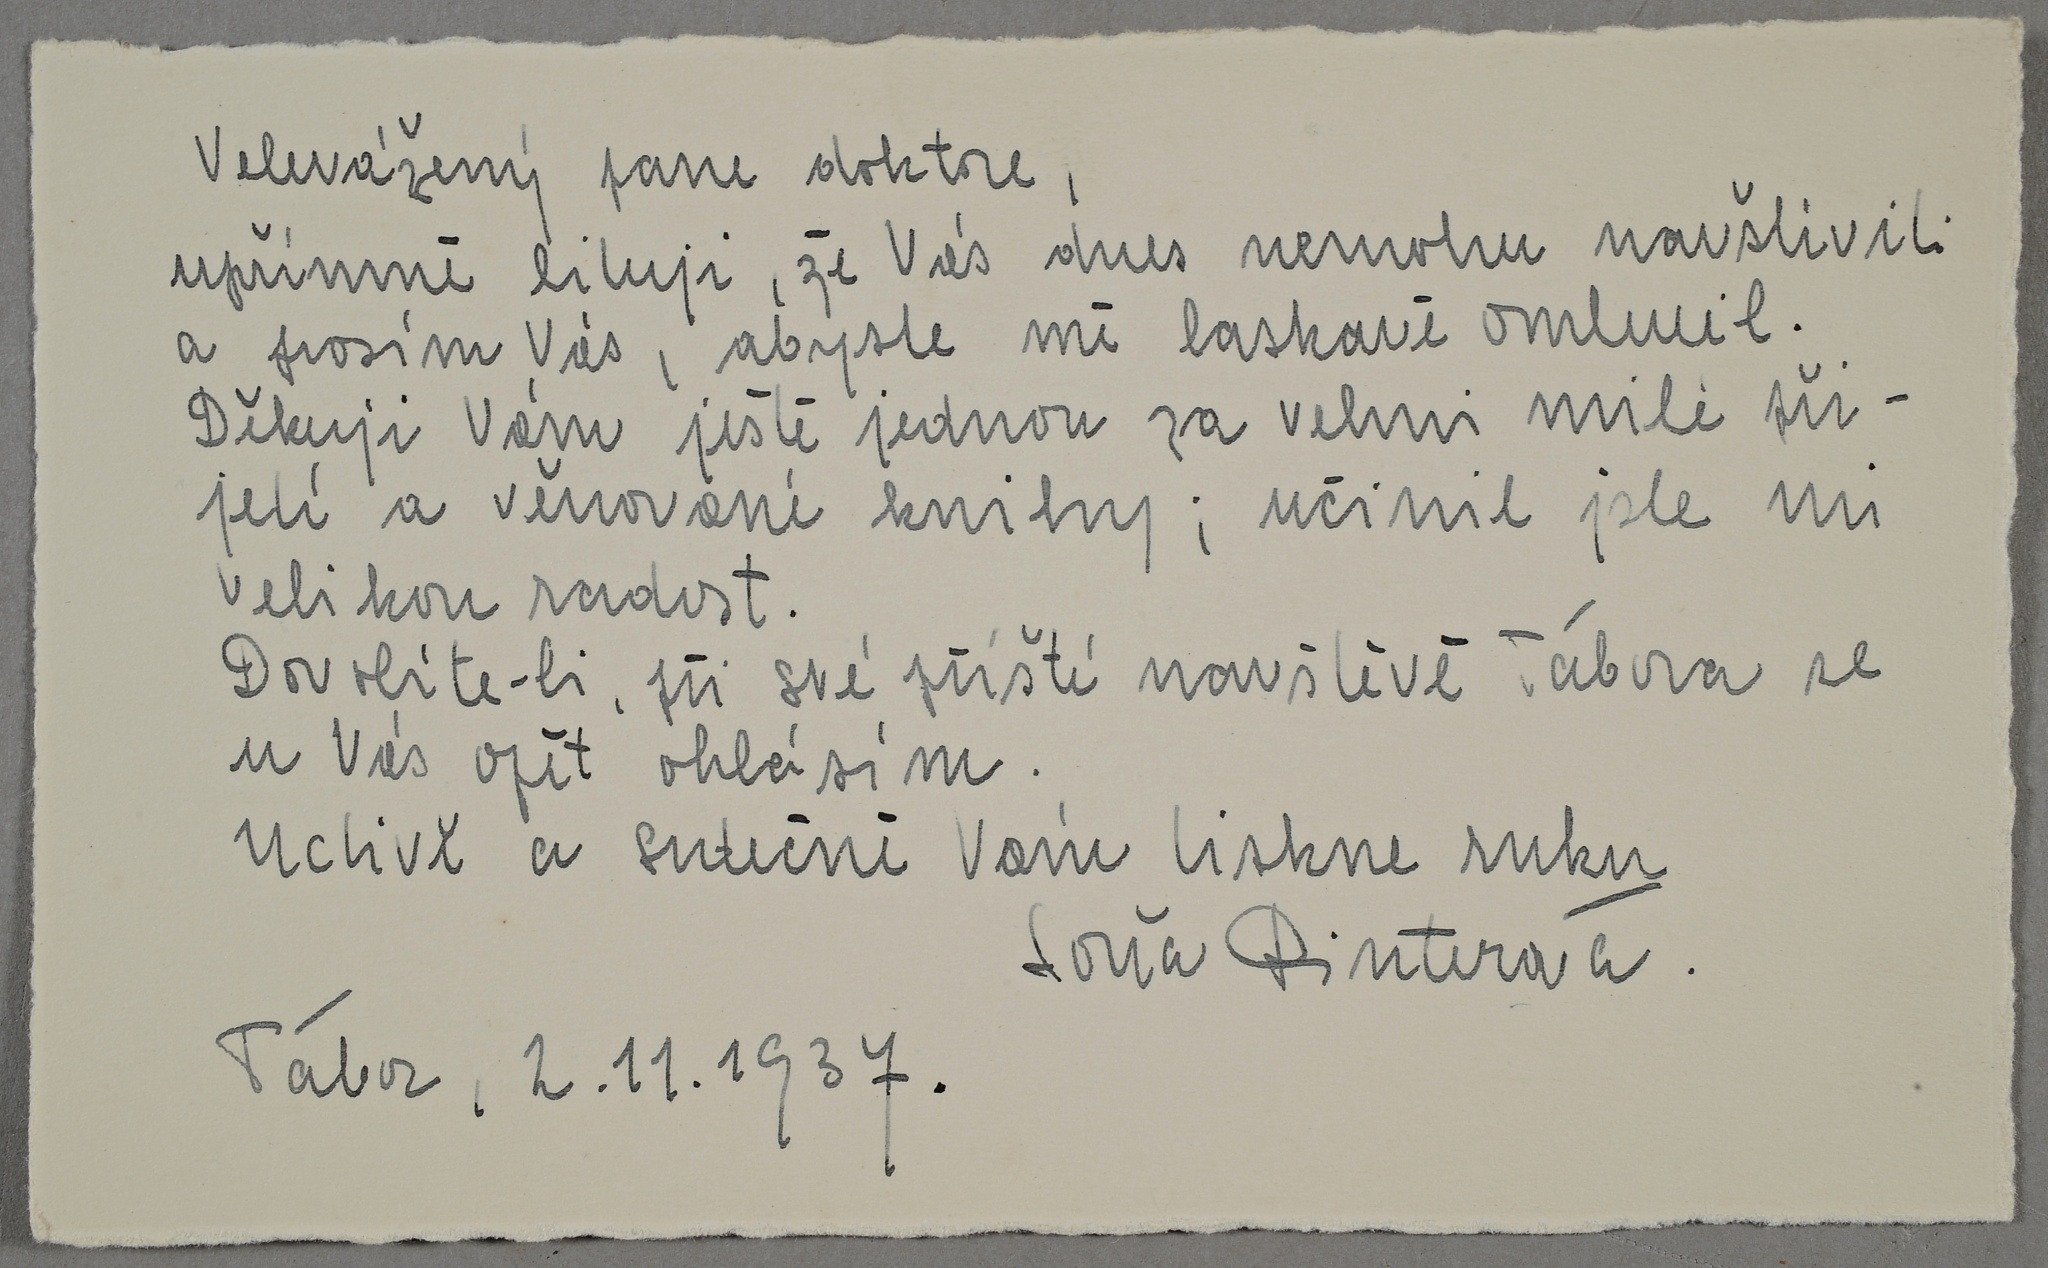 Velevážený pane doktore,
upřímně lituji, že Vás dnes nemohu navštíviti
a prosím Vás, abyste mě laskavě omluvil.
Děkuji Vám ještě jednou za velmi milé při-
jetí a věnované knihy; učinil jste mi
velikou radost.
Dovolíte-li, při své příští návštěvě Tábora se
u Vás opět ohlásím.
Uctivě a srdečně Vám tiskne ruku
Soňa Pinterová.
Tábor, 2.11.1937.